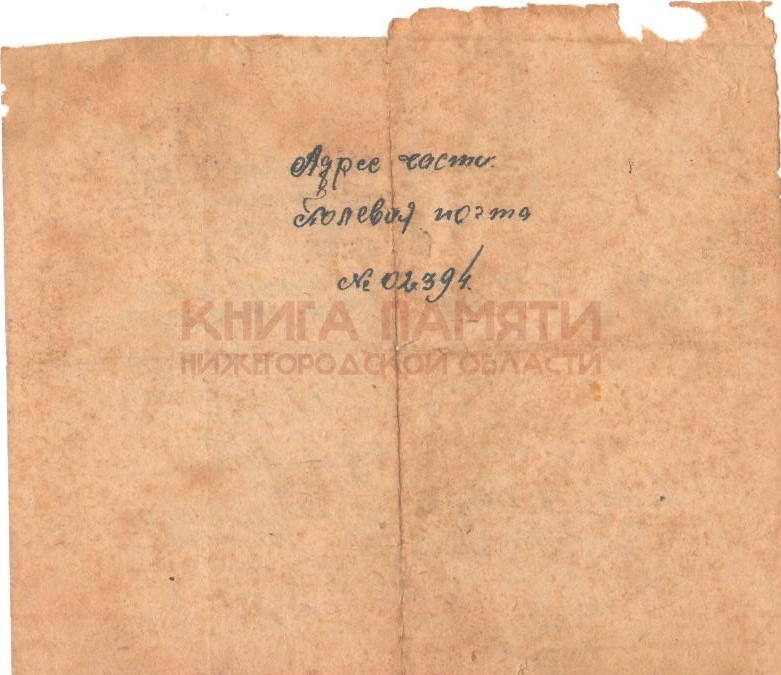 Адрес части.
Полевая почта
№ 02394.
КНИГА ПАМЯТИ
НИЖЕГОРОДСКОЙ ОБЛАСТИ